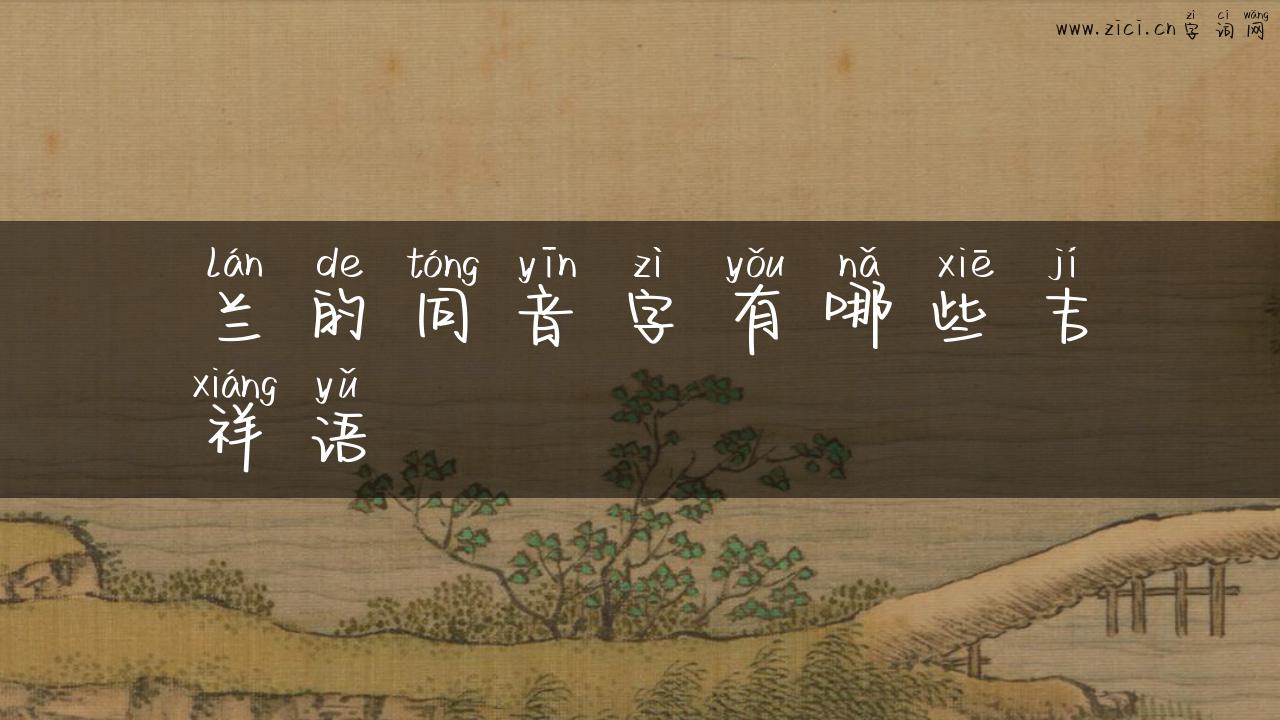 zì cí wǎng
www.zici.cn 字词网
lán de tóng yīn zì yǒu nǎ xiē jí
兰的同音字有哪些吉
xiáng yǔ
祥语